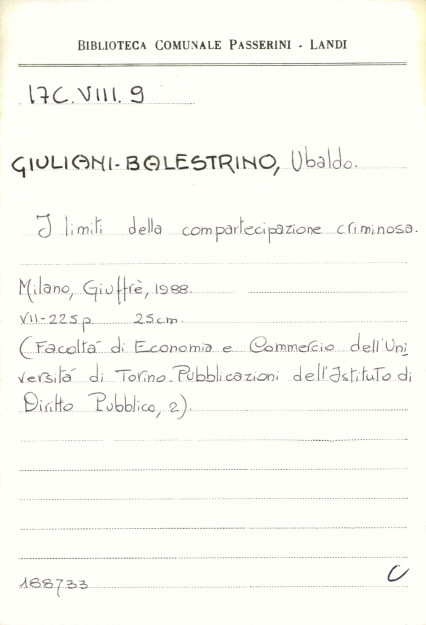 BIBLIOTECA COMUNALE PASSERINI - LANDI
17C.VIII.9
GIULIANI-BALESTRINO, Ubaldo.
I limiti della compartecipazione criminosa.
Milano, Giuffrè, 1988.
VII-225p 25cm.
(Facoltà di Economia e Commercio dell'Uni
versità di Torino-Pubblicazioni dell'Istituto di
Diritto Pubblico, 2).
168733 C